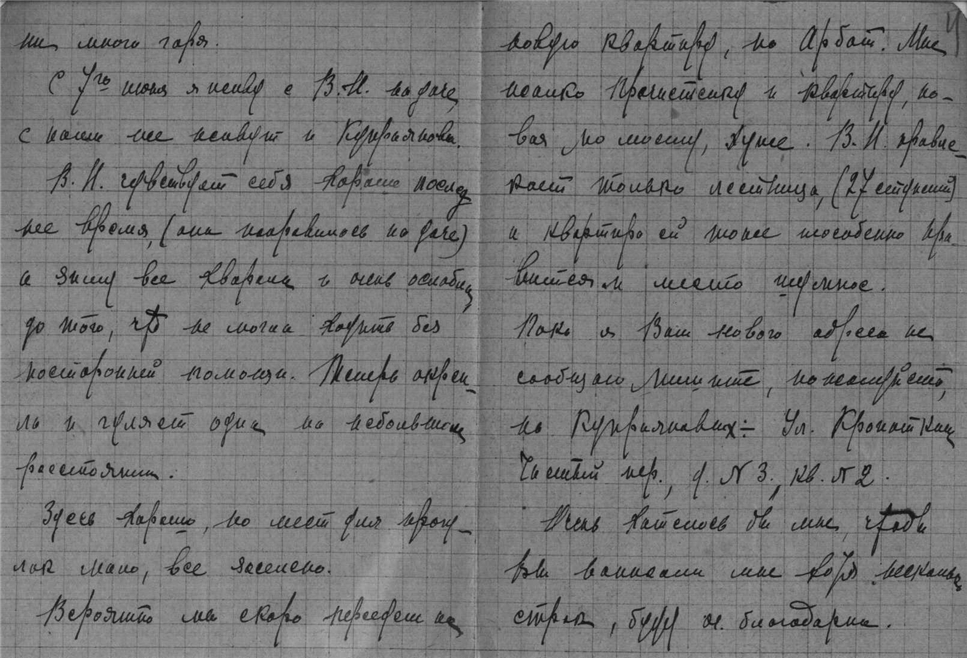 ни много горя.
С 7го июня я живу с В.И. на даче,
с нами же живут и Куприяновы.
В.И. чувствует себя хорошо послед
нее время, (она поправилось на даче)
а зиму все хварала и очень ослабла,
до того, что не могла ходить без
посторонней помощи. Теперь окреп-
ла и гуляет одна на небольшом
расстоянии.
Здесь хорошо, но мест для прогу-
лок мало, все заселено.
Вероятно мы скоро переедем на
новую квартиру, на Арбат. Мне
жалко Пречистенку и квартиру, но-
вая, по моему, хуже. В.И. нравит-
ся только лестница, (27 ступеней)
и квартира ей тоже не особенно нра-
вится и место шумное.
Пока я Вам нового адреса не
сообщаю, пишите, пожалуйста,
на Куприяновых:- Ул. Кропоткина
Чистый пер., д. N 3., кв. N 2.
Очень хотелось бы мне, чтобы
вы написали мне хотя несколько
строк, буду оч. благодарна.
4